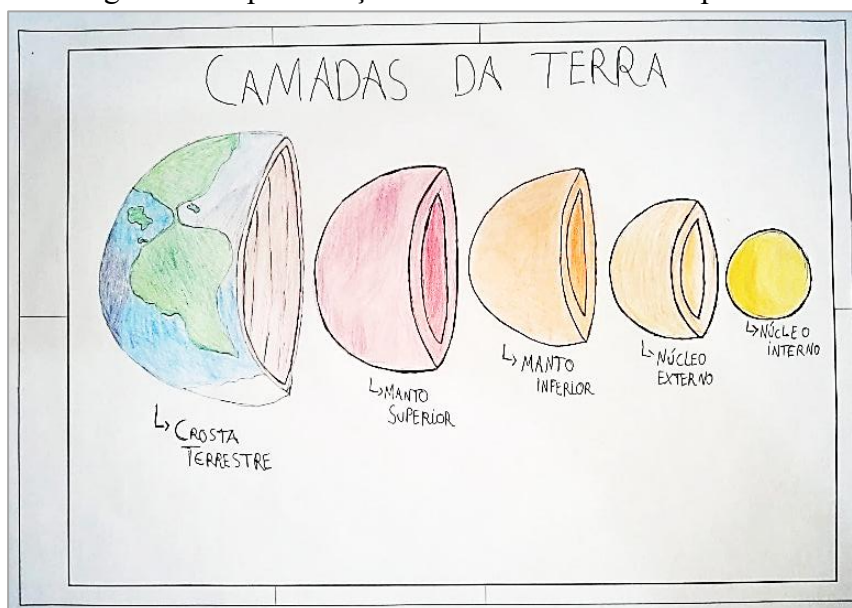 CAMADAS DA TERRA
↳ CROSTA
TERRESTRE
↳ MANTO
SUPERIOR
↳ MANTO
INFERIOR
↳ NÚCLEO
EXTERNO
↳ NÚCLEO
INTERNO